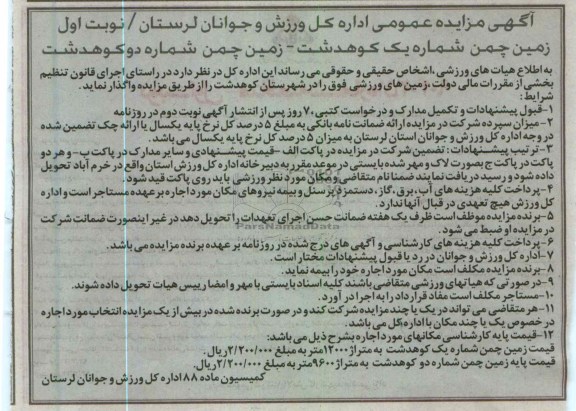 آگهی مزایده عمومی اداره کل ورزش و جوانان لرستان / نوبت اول
زمین چمن شماره یک کوهدشت - زمین چمن شماره دو کوهدشت
به اطلاع هیات های ورزشی، اشخاص حقیقی و حقوقی می رساند این اداره کل در نظر دارد در راستای اجرای قانون تنظیم
بخشی از مقررات مالی دولت، زمین های ورزشی فوق را در شهرستان کوهدشت را از طریق مزایده واگذار نماید.
شرایط:
۱-قبول پیشنهادات و تکمیل مدارک و درخواست کتبی، ۷ روز پس از انتشار آگهی نوبت دوم در روزنامه
۲- میزان سپرده شرکت در مزایده ارائه ضمانت نامه بانکی به مبلغ ۵ درصد کل نرخ پایه یکسال یا ارائه چک تضمین شده
در وجه اداره کل ورزش و جوانان استان لرستان به میزان ۵ درصد کل نرخ پایه یکسال می باشد.
۳- ترتیب پیشنهادات: تضمین شرکت در مزایده در پاکت الف -قیمت پیشنهادی و سایر مدارک در پاکت ب- و هر دو
پاکت در پاکت ج بصورت لاک و مهر شده بایستی در موعد مقرر به دبیرخانه اداره کل ورزش استان واقع در خرم آباد تحویل
داده شود و رسید دریافت نمایند ضمنا نام متقاضی و مکان مورد نظر ورزشی باید روی پاکت قید شود.
۴-پرداخت کلیه هزینه های آب، برق، گاز، دستمزد پرسنل و بیمه نیروهای مکان مورد اجاره بر عهده مستاجر است و اداره
کل ورزش هیچ تعهدی در قبال آنها ندارد.
۵-برنده مزایده موظف است ظرف یک هفته ضمانت حسن اجرای تعهدات را تحویل دهد در غیر اینصورت ضمانت شرکت
در مزایده او ضبط می شود.
ParsNamadData
۶-پرداخت کلیه هزینه های کارشناسی و آگهی های درج شده در روزنامه بر عهده برنده مزایده می باشد.
۷-اداره کل ورزش و جوانان در رد یا قبول پیشنهادات مختار است.
۸-برنده مزایده مکلف است مکان مورد اجاره خود را بیمه نماید.
۹-در صورتی که هیاتهای ورزشی متقاضی باشند کلیه اسناد بایستی با مهر و امضا رییس هیات تحویل داده شوند.
۱۰-مستاجر مکلف است مفاد قرارداد را به اجرا در آورد.
۱۱-هر متقاضی می تواند در یک یا چند مزایده شرکت کند و در صورت برنده شده در بیش از یک مزایده انتخاب مورد اجاره
در خصوص یک یا چند مکان با اداره کل می باشد.
۱۲-قیمت پایه کارشناسی مکانهای مورد اجاره بشرح ذیل می باشد:
قیمت زمین چمن شماره یک کوهدشت به متراژ ۱۲۰۰۰متر به مبلغ ۲/۲۰۰/۰۰۰ریال.
قیمت پایه زمین چمن شماره دو کوهدشت به متراژ ۹۶۰۰متر به مبلغ ۲/۲۰۰/۰۰۰ریال.
کمیسیون ماده ۸۸ اداره کل ورزش و جوانان لرستان